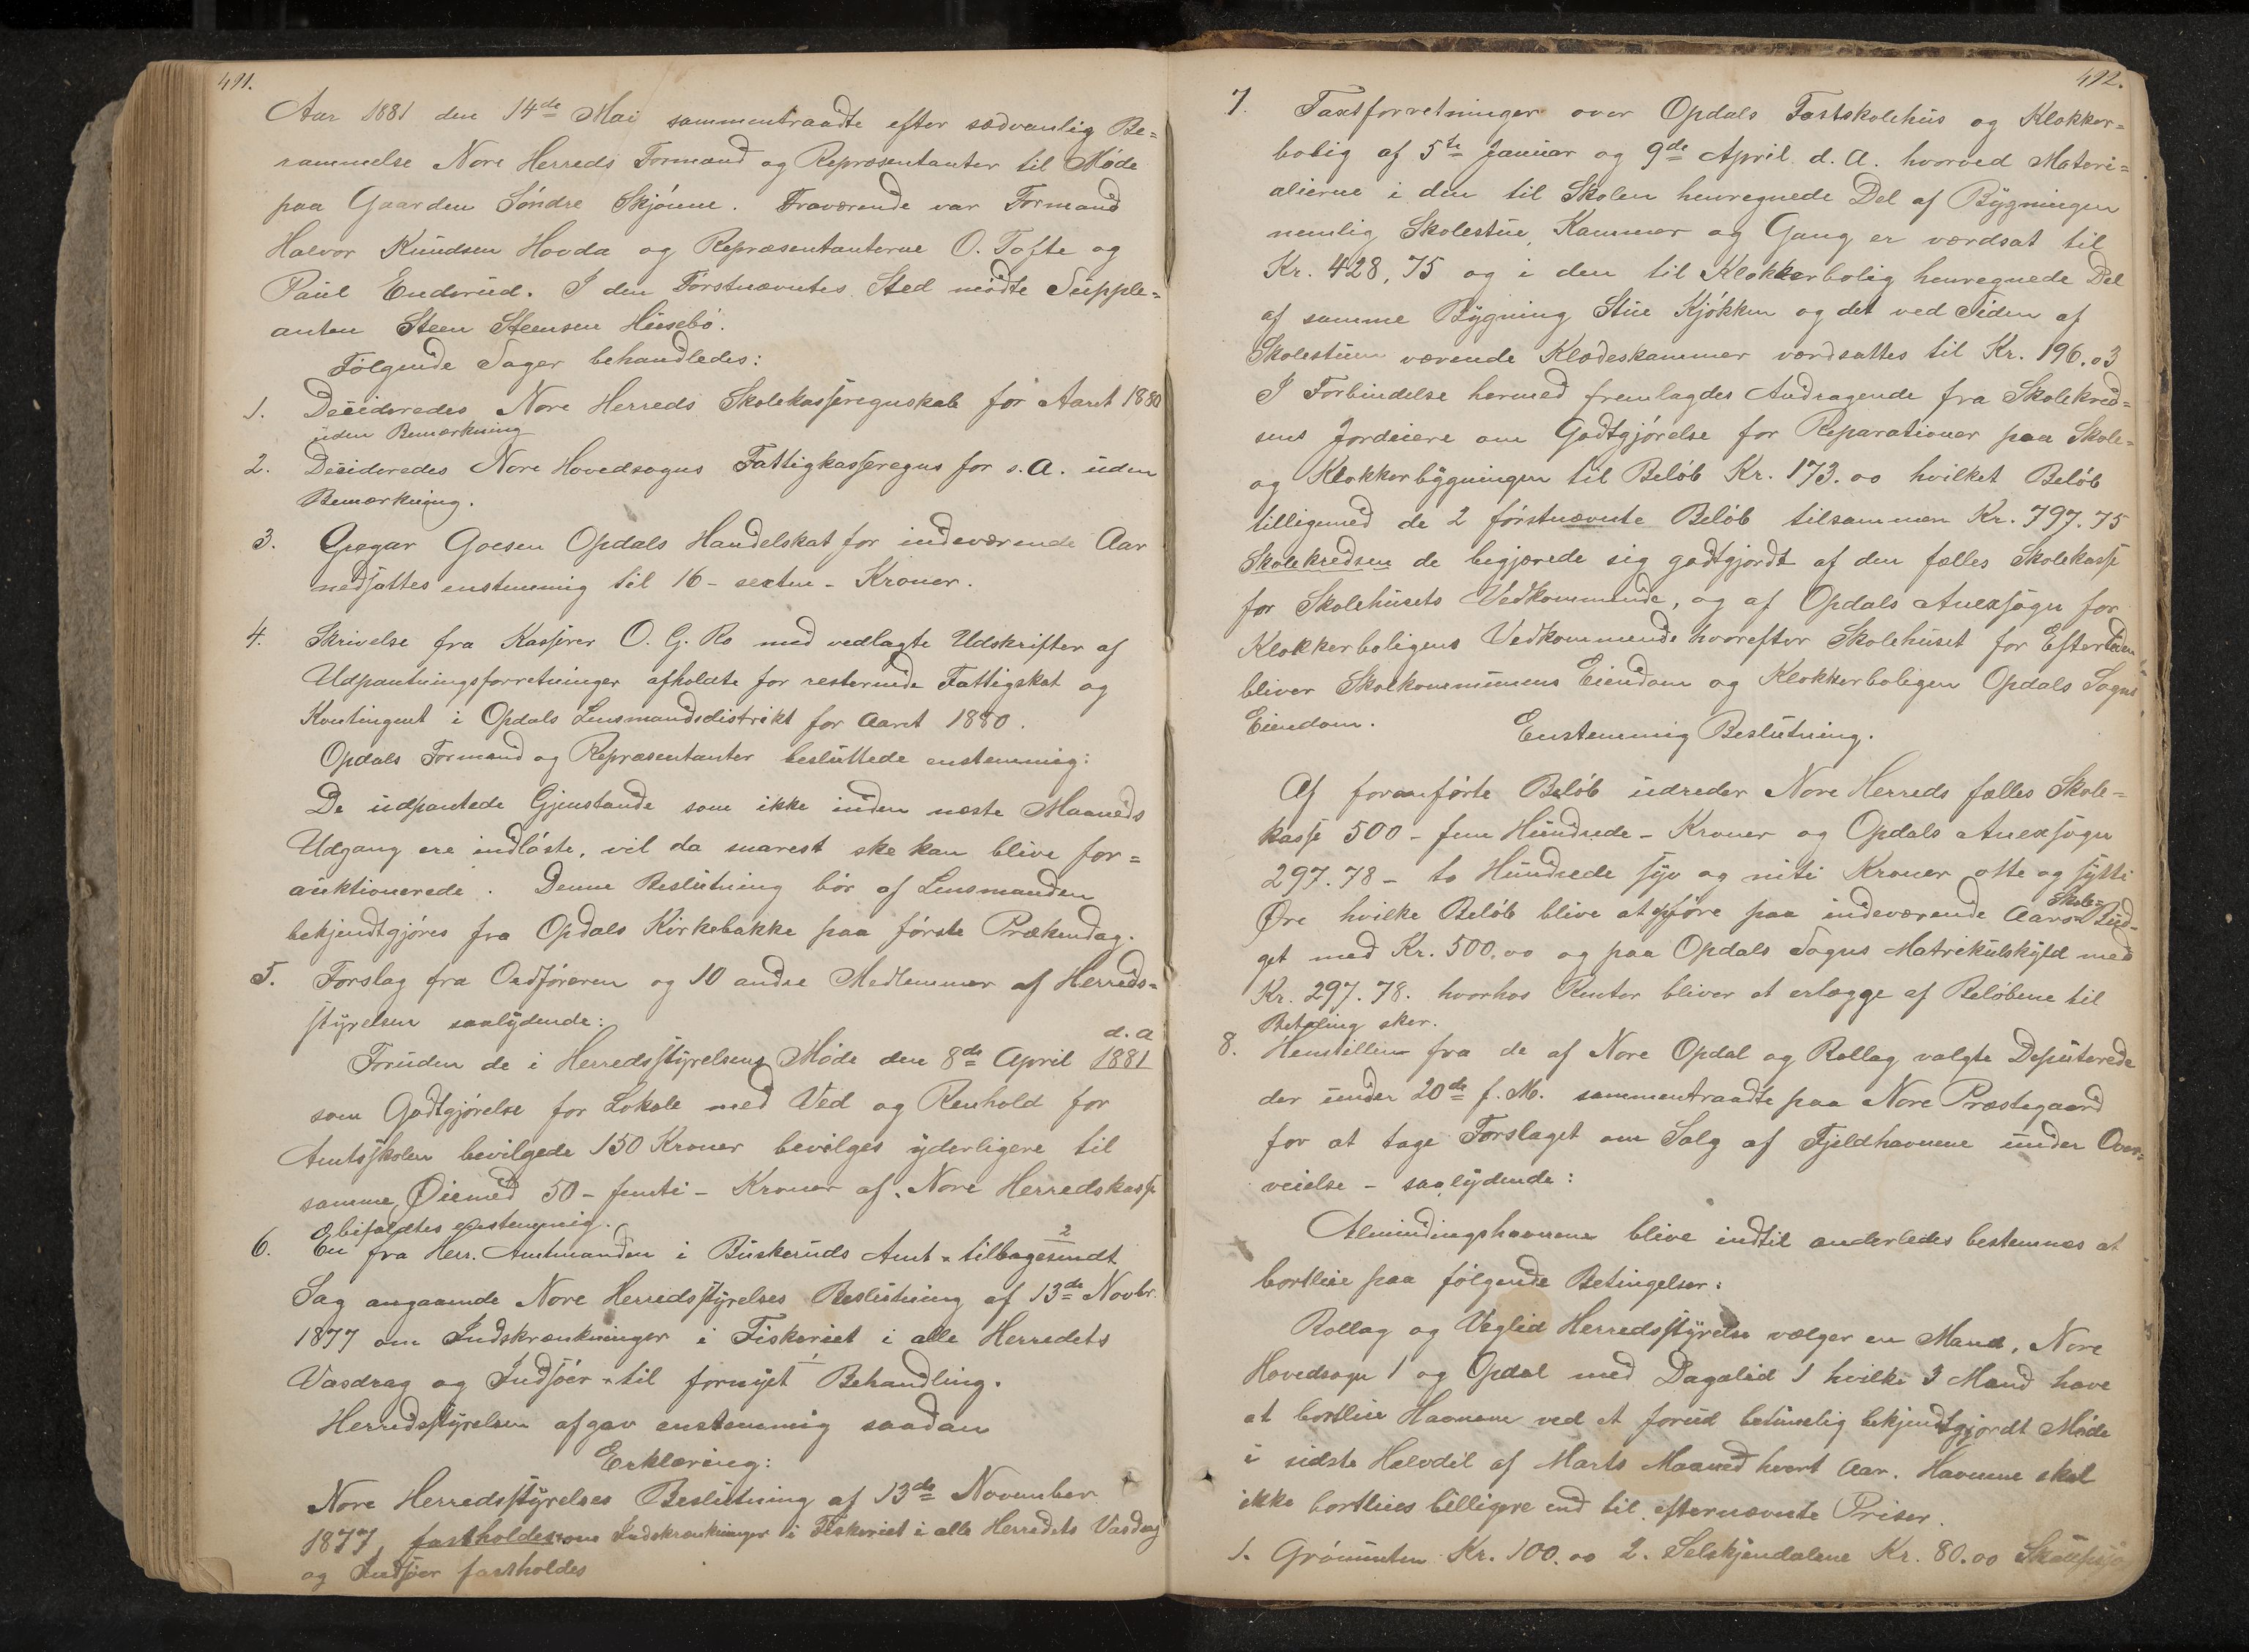 491.
Aar 1881 den 14de Mai sammentraadte efter sædvanlig Be=
rammelse Nore Herreds Formænd og Repræsentanter til Møde
paa Gaarden Søndre Skjønne. Fraværende var Formand
Halvor Knudsen Hovda og Repræsentanterne O. Tofte og
Paul Enderud. I den Førstnævntes Sted mødte Supple=
anten Steen Steensen Huusebø.
Følgende Sager behandledes:
1. Decideredes Nore Herreds Skolekasseregnskab for Aaret 1880
uden Bemærkning
2. Decideredes Nore Hovedsogns Fattigkasseregns for s. A. uden
Bemærkning.
3. Gregar Goesen Opdals Handelskat for indeværende Aar
nedsattes enstemmig til 16 - sexten - Kroner.
4. Skrivelse fra Kasserer O. G. Ro med vedlagte Udskrifter af
Udpantningsforretninger afholdte for resterende Fattigskat og
Kontingent i Opdals Lensmandsdistrikt for Aaret 1880.
Opdals Formænd og Repræsentanter besluttede enstemmig:
De udpantede Gjenstande som ikke inden næste Maaneds
Udgang ere indløste, vil da snarest ske kan blive for=
auktionerede. Denne Beslutning bør af Lensmanden
bekjendtgjøres fra Opdals Kirkebakke paa første Prækendag.
5. Forslag fra Ordføreren og 10 andre Medlemmer af Herreds=
styrelsen saalydende:
d. A
Foruden de i Herredsstyrelsens Møde den 8de April 1881
som Godtgjørelse for Lokale med Ved og Renhold for
Amtsskolen bevilgede 150 Kroner bevilges yderligere til
samme Øiemed 50 - femti - Kroner af Nore Herredskasse
bifaldtes enstemmig.
2
6. En fra Herr. Amtmanden i Buskeruds Amt tilbagesendt
Sag angaaende Nore Herredsstyrelses Beslutning af 13de Novbr.
1877 om Indskrænkninger i Fiskeriet i alle Herredets
Vasdrag og Indsøer til fornyet Behandling.
Herredsstyrelsen afgav enstemmig saadan
Erklæring:
Nore Herredsstyrelses Beslutning af 13de November
1877, fastholdes om Indskrænkninger i Fiskeriet i alle Herredets Vasdrag
og Indsøer fastholdes
492.
7. Taxtforretninger over Opdals Fastskolehus og Klokker=
bolig af 5te Januar og 9de April d. A. hvorved Materi=
alierne i den til Skolen henregnede Del af Bygningen
nemlig Skolestue, Kammer og Gang er værdsat til
Kr. 428,75 og i den til Klokkerbolig henregnede Del
af samme Bygning Stue Kjøkken og det ved Siden af
Skolestuen værende Klædeskammer værdsattes til Kr. 196.03
I Forbindelse hermed fremlagdes Andragende fra Skolekred=
sens Jordeiere om Godtgjørelse for Reparationer paa Skole=
og Klokkerbygningen til Beløb Kr. 173.00 hvilket Beløb
tilligemed de 2 førstnævnte Beløb tilsammen Kr. 797.75
Skolekredsen de begjærede sig godtgjordt af den fælles Skolekasse
for Skolehusets Vedkommende, og af Opdals Anexsogn for
Klokkerboligens Vedkommende hvorefter Skolehuset for Eftertiden
bliver Skolkommunens Eiendom og Klokkerboligen Opdals Sogns
Eiendom.
Enstemmig Beslutning.
Af foranførte Beløb udreder Nore Herreds fælles Skole=
kasse 500 - fem Hundrede - Kroner og Opdals Anexsogn
297.78 - to Hundrede syv og niti Kroner otte og sytti
Skole=
Øre hvilke Beløb blive at opføre paa indeværende Aars Bud=
get med Kr. 500.00 og paa Opdals Sogns Matrikulskyld med
Kr. 297.78. hvorhos Renter bliver at erlægge af Beløbene til
Betaling sker.
8. Henstillen fra de af Nore Opdal og Rollag valgte Deputerede
der under 20de f. M. sammentraadte paa Nore Præstegaard
for at tage Forslaget om Salg af Fjeldhavnene under Over=
veielse - saalydende:
Almindingshavnene blive indtil anderledes bestemmes at
bortleie paa følgende Betingelser:
Rollag og Veglid Herredsstyrelse vælger en Mand, Nore
Hovedsogn 1 og Opdal med Dagalid 1 hvilke 3 Mænd have
at bortleie Havnene ved et forud betimelig bekjendtgjordt Møde
i sidste Halvdel af Marts Maaned hvert Aar. Havnene skal
ikke bortleies billigere end til efternævnte Priser.
1. Kr. 100.00 2. Selskjendalene Kr. 80.00